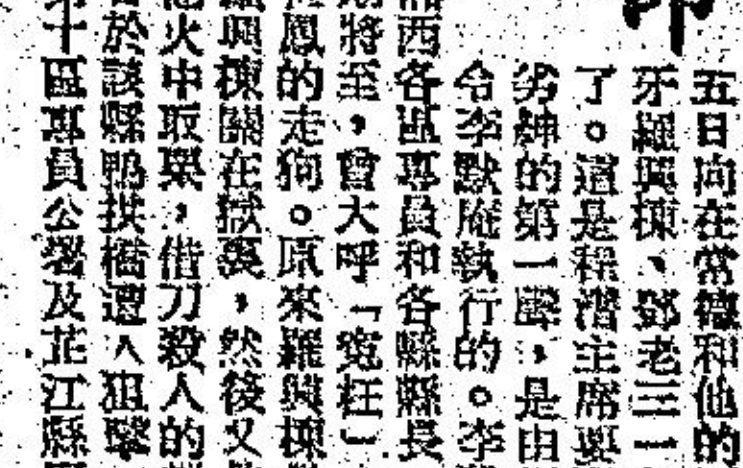 五日向在常德和他的
牙羅興棟、鄧老三一
了。這是程潛主席要
劣紳的第一聲，是由
令李默庵執行的。李
西各區專員和各縣縣長
將至，曾大呼「寃枉」
鳳的走狗。原來羅興棟
興棟關在獄裏，然後又
火中取栗，借刀殺人的
於該縣鴨拱橋遭人狙擊
十區專員公署及芷江縣